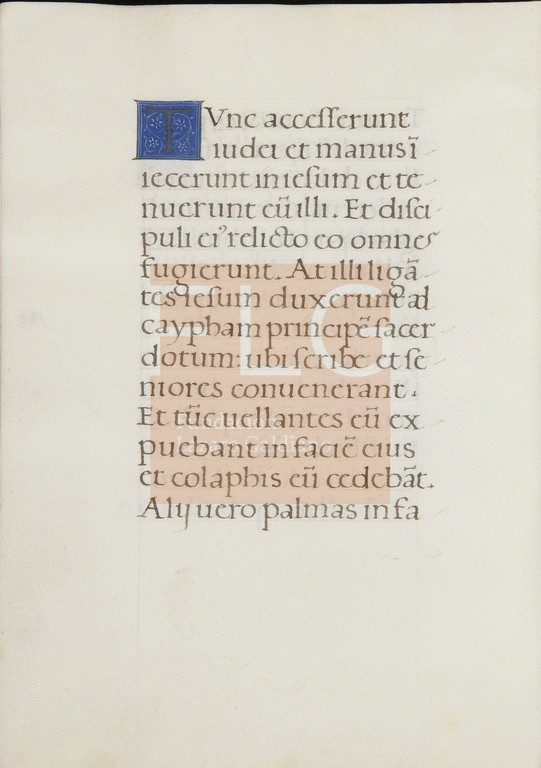 TVnc accesserunt
iudei et manus ī
iecerunt in iesum et te
nuerunt cū illi. Et disci
puli ei' relicto eo omnes
fugierunt. At illi ligā
tes iesum duxerunt ad
caypham principē sacer
dotum: ubi scribe et se
niores conuenerant.
Et tūc uellantes eū ex
puebant in faciē eius
et colaphis eū cedebāt.
Alij uero palmas in fa
FLG
Fundación
Lázaro Galdiano